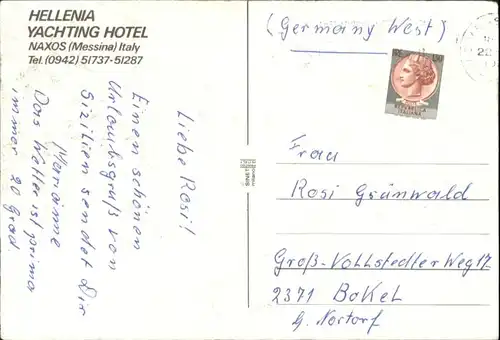 HELLENIA
YACHTING HOTEL
NAXOS (Messina) Italy
Tel. (0942) 51737-51287
Liebe Rosi!
Einen schönen
Urlaubsgruß von
Sizilien sendet Dir
Marianne
Das Wetter ist prima
immer 20 Grad
(Germany West)
Frau
Rosi Grünwald
Groß-Vollstedter Weg 17
2371 Bokel
b. Nortorf